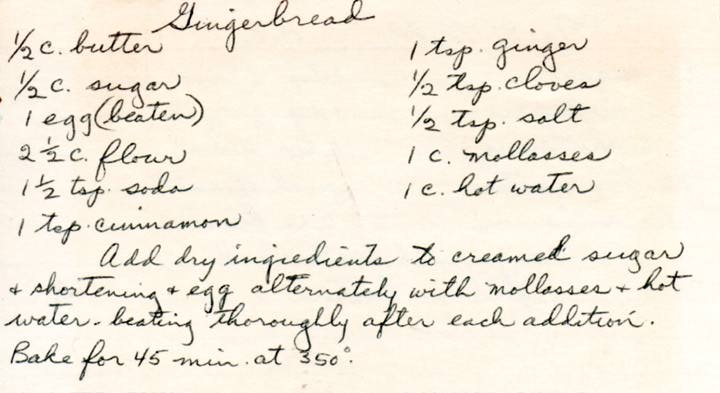 Gingerbread
½ c. butter
½ c. sugar
1 egg (beaten)
2½ c. flour
1½ tsp. soda
1 tsp. cinnamon
1 tsp. ginger
½ tsp. cloves
½ tsp. salt
1 c. mollasses
1 c. hot water
Add dry ingredients to creamed sugar
+ shortening + egg alternately with mollasses + hot
water - beating thoroughly after each addition.
Bake for 45 min. at 350°.